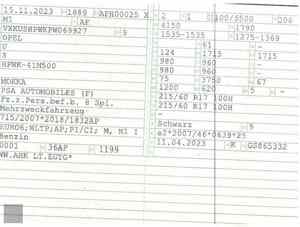 15.11.2023 1889 APH00025 X
M1 AF
VXKUSHPWKPW069327 5
OPEL
U
3
HPNK-61M500
MOKKA
PSA AUTOMOBILES (F)
Fz.z.Pers.bef.b. 8 Spl.
Mehrzweckfahrzeug
715/2007*2018/1832AP
EURO6;WLTP;AP;PI/CI; M, N1 I
Benzin
0001 36AP 1199
WW.AHK LT.EGTG*
2 1 100/5500 206
4150 1790
1535-1535 1275-1369
- 61 -
124 1715 1715
980 960 -
980 960 -
75 3750 67
1200 620 5 -
215/60 R17 100H
215/60 R17 100H
-
Schwarz 5
e2*2007/46*0639*25
11.04.2023 K GS865332